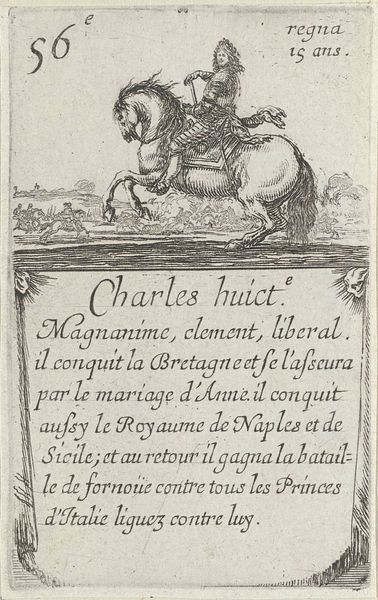 56e
regna
15 ans.
Charles huicte.
Magnanime, clement, liberal.
il conquit la Bretagne et se l'asseura
par le mariage d'Anne. il conquit
aussy le Royaume de Naples et de
Sicile; et au retour il gagna la batail=
le de fornoüe contre tous les Princes
d'Italie liguez contre luy.